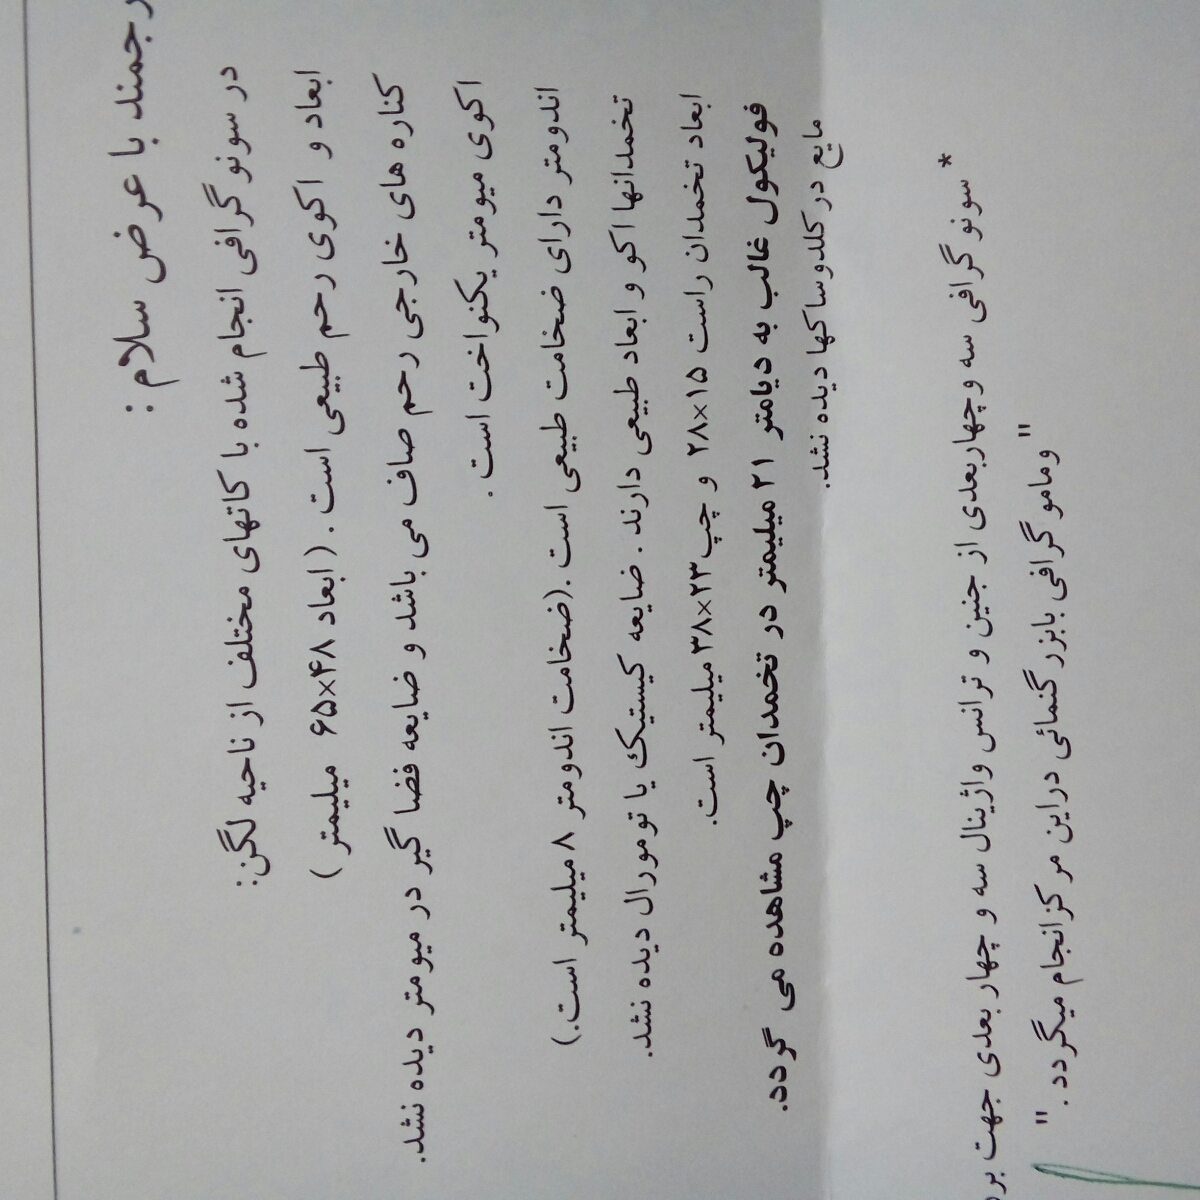 با عرض سلام :
در سونو گرافی انجام شده با کاتهای مختلف از ناحیه لگن:
ابعاد و اکوی رحم طبیعی است . (ابعاد ۶۵×۴۸ میلیمتر )
کناره های خارجی رحم صاف می باشد و ضایعه فضا گیر در میومتر دیده نشد.
اکوی میومتر یکنواخت است .
اندومتر دارای ضخامت طبیعی است .(ضخامت اندومتر ۸ میلیمتر است.)
تخمدانها اکو و ابعاد طبیعی دارند . ضایعه کیستیک یا تومورال دیده نشد.
ابعاد تخمدان راست ۲۸×۱۵ و چپ ۳۸×۲۳ میلیمتر است.
فولیکول غالب به دیامتر ۲۱ میلیمتر در تخمدان چپ مشاهده می گردد.
مایع در کلدوساکها دیده نشد.
*سونو گرافی سه وچهاربعدی از جنین و ترانس واژینال سه و چهار بعدی جهت
"ومامو گرافی بابزر گنمائی دراین مر کزانجام میگردد . "